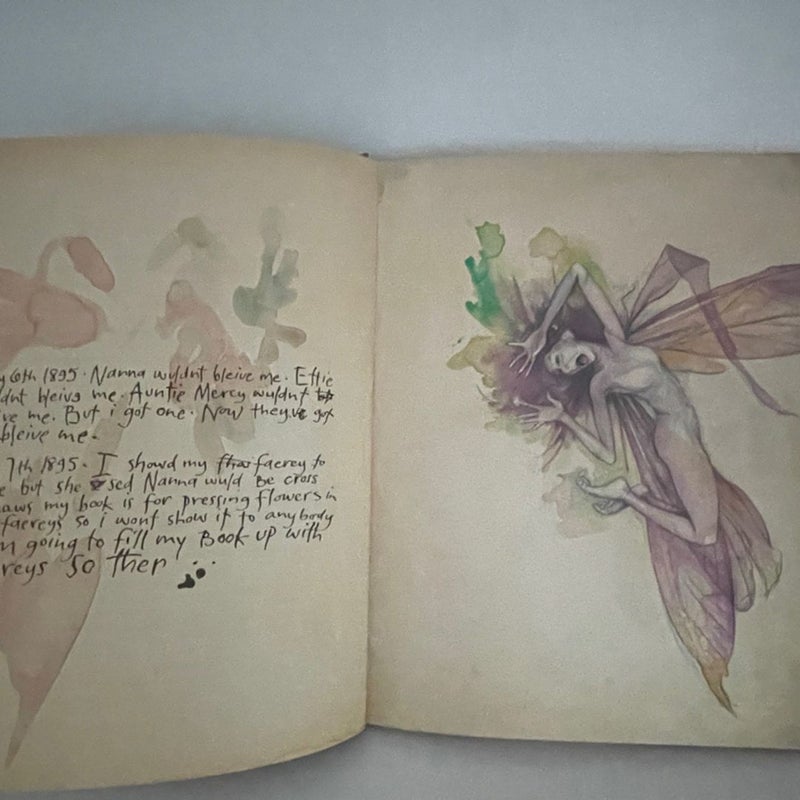 y 6th 1895. Nanna wuldnt bleive me. Effie
dnt bleive me. Auntie Mercy wuldnt
ve me. But i got one. Now theyve got
bleive me.
7th 1895. I showd my faerey to
e but she sed Nanna wuld be cross
aws my book is for pressing flowers in
faereys so i wont show it to anybody
m going to fill my Book up with
reys So ther